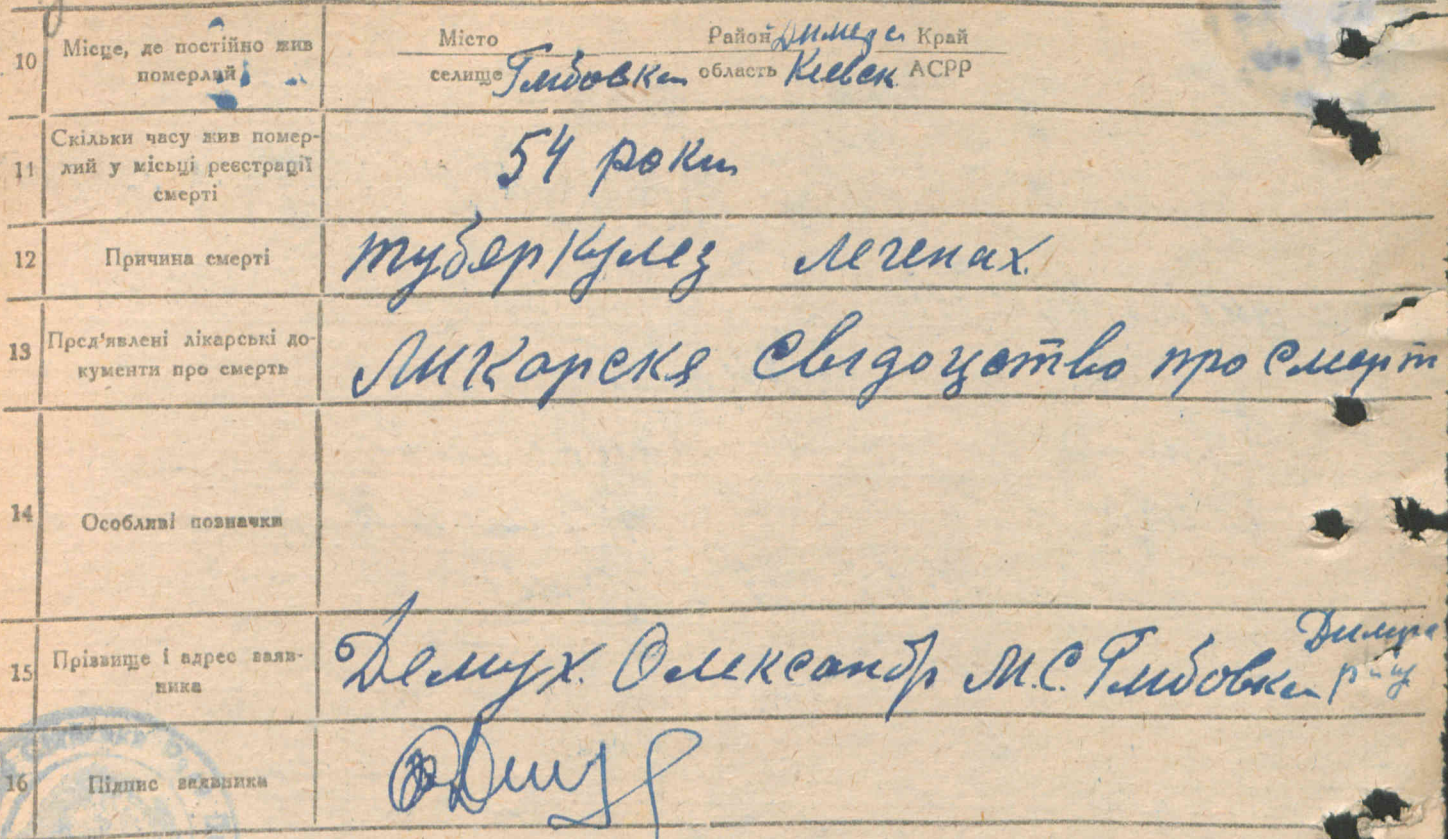 10 Місце, де постійно жив померлий
Місто Район Димерс Край
селище Глибовка область Киевск АСРР
11 Скільки часу жив помер-
лий у місьці реєстрації
смерті
54 роки
12 Причина смерті
туберкулез легенах.
13 Пред'явлені лікарські до-
кументи про смерть
Ликарске свидоцтво про смерт
14 Особливі позначки
15 Прізвище і адрес заяв-
ника
Демух. Олександр М.С. Глибовка
16 Підпис заявника